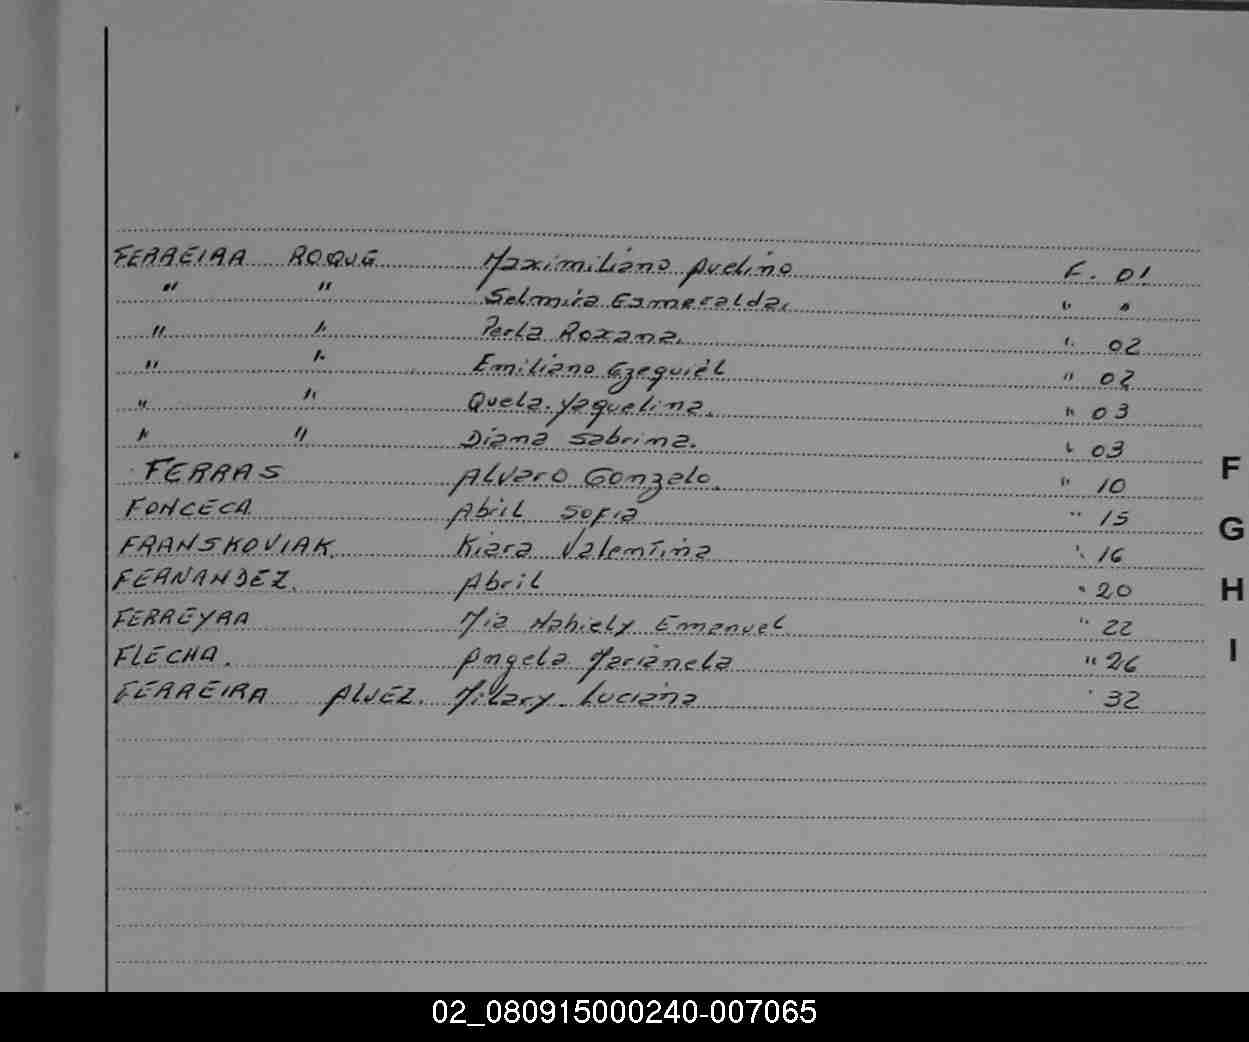 FERREIRA ROQUE Maximiliano Avelino F. 01
" " Selmira Esmeralda. " "
" " Perla Roxana. " 02
" " Emiliano Ezequiel " 02
" " Quela Yaquelina. " 03
" " Diana Sabrina. " 03
FERRAS Alvaro Gonzalo. " 10
FONCECA Abril Sofia " 15
FRANSKOVIAK. Kiara Valentina " 16
FERNANDEZ. Abril " 20
FERREYRA Mia Nahiely Emanuel " 22
FLECHA. Angela Marianela " 26
FERREIRA ALVEZ. Hilary Luciana " 32
F
G
H
I
02_080915000240-007065